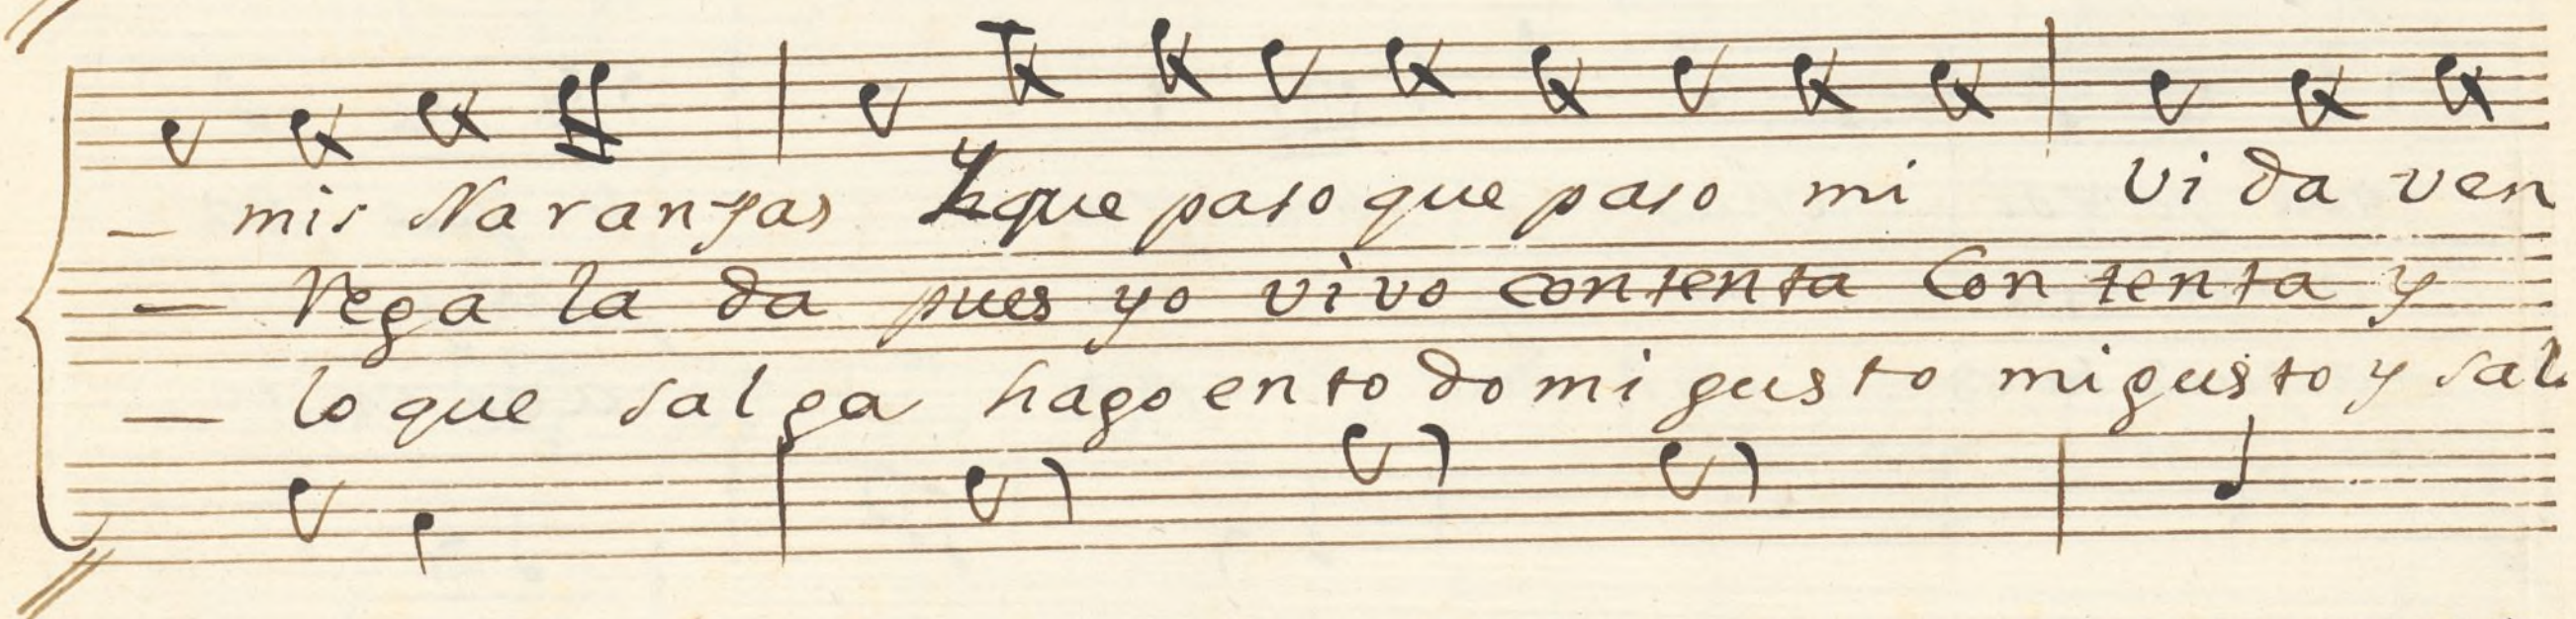 _ mis Na ran jas y que paso que paso mi vi da ven
_ rega la da pues yo vivo contenta Con tenta y
_ lo que sal ga hago en to do mi gus to mi gusto y sal